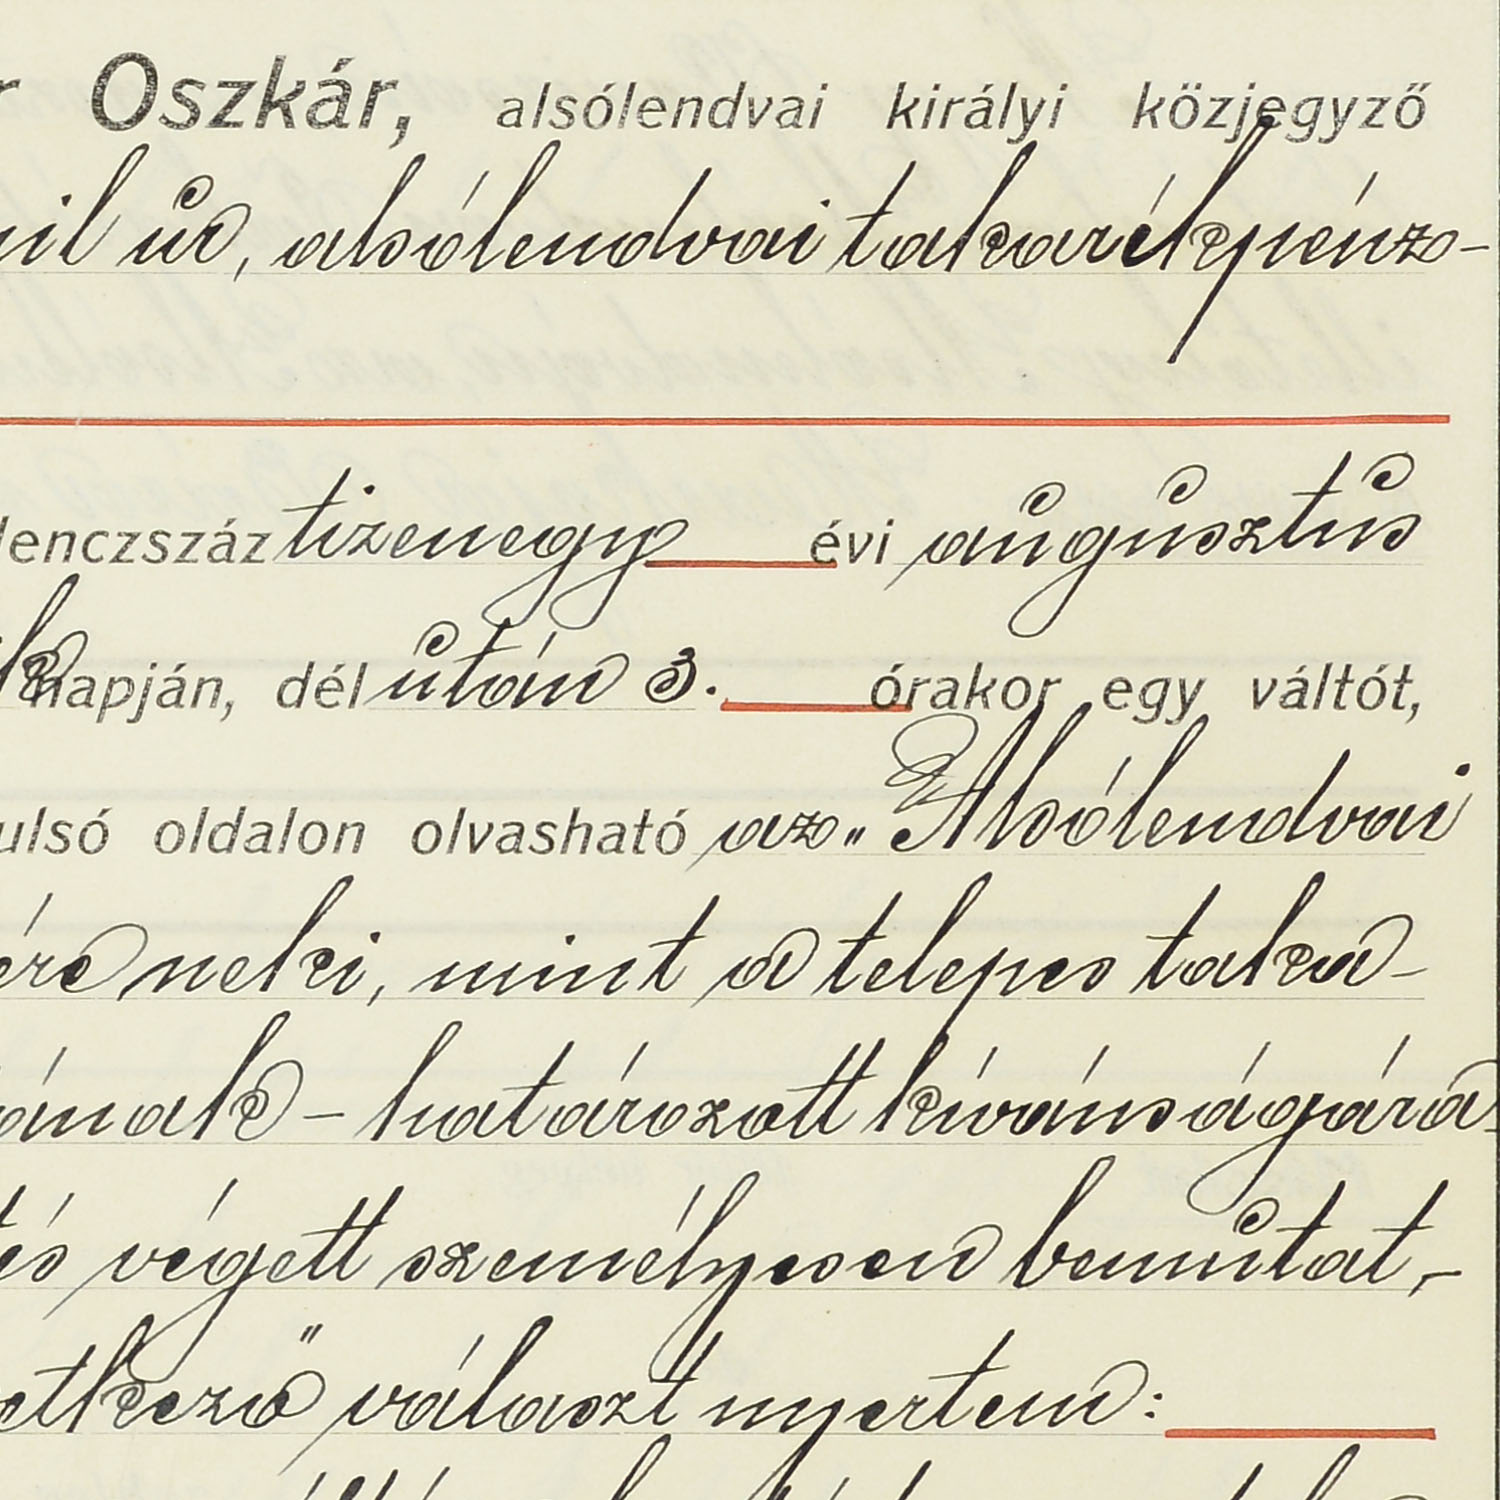 r Oszkár, alsólendvai királyi közjegyző
il úr, alsólendvai takarékpénz-
lenczszáz tizenegy évi augusztus
napján, dél után 3. órakor egy váltót,
ulsó oldalon olvasható az „Alsólendvai
ére neki, mint a telepes taka-
ának - határozott kívánságára
és végett személyesen bemutat,-
etkező választ nyertem: